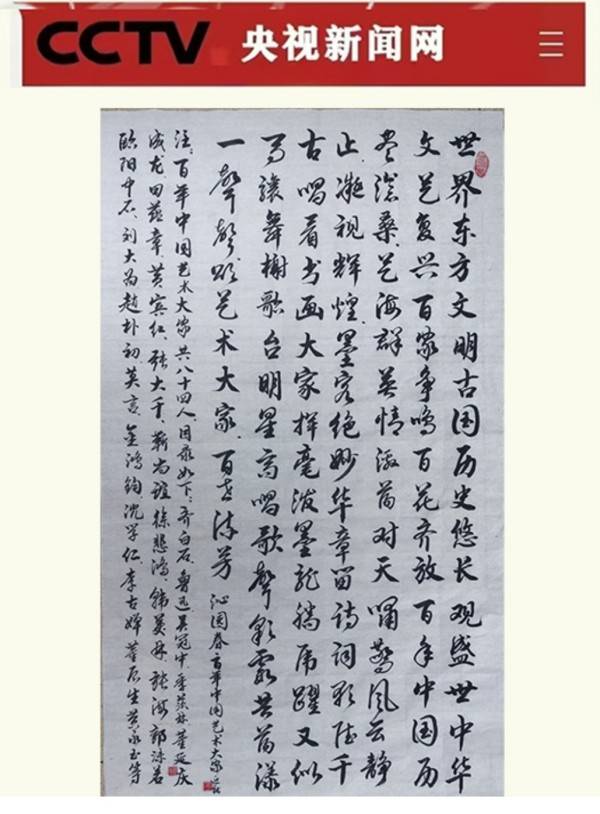 CCTV 央视新闻网
世界东方文明古国历史悠长 观盛世中华
文艺复兴百家争鸣百花齐放 百年中国历
尽沧桑、艺海群英情激荡对天啸惊风云静
止、凝视辉煌、墨客绝妙华章留诗词千
古唱看书画大家挥毫泼墨龙腾虎跃又似
舞榭歌台明星高唱歌声彩霞共荡漾
一声声颂艺术大家、百世流芳 沁园春百年中国艺术大家
注:百年中国艺术大家共八十四人、目录如下:齐白石、鲁迅、吴冠中、季羡林、董延庆
成龙、田蕴章、黄宾红、张大千、靳尚谊、徐悲鸿、韩美林、张海、郭沫若
欧阳中石、刘大为、赵朴初、莫言、金鸿钧、沈学仁、李古婵、董辰生、黄永玉等